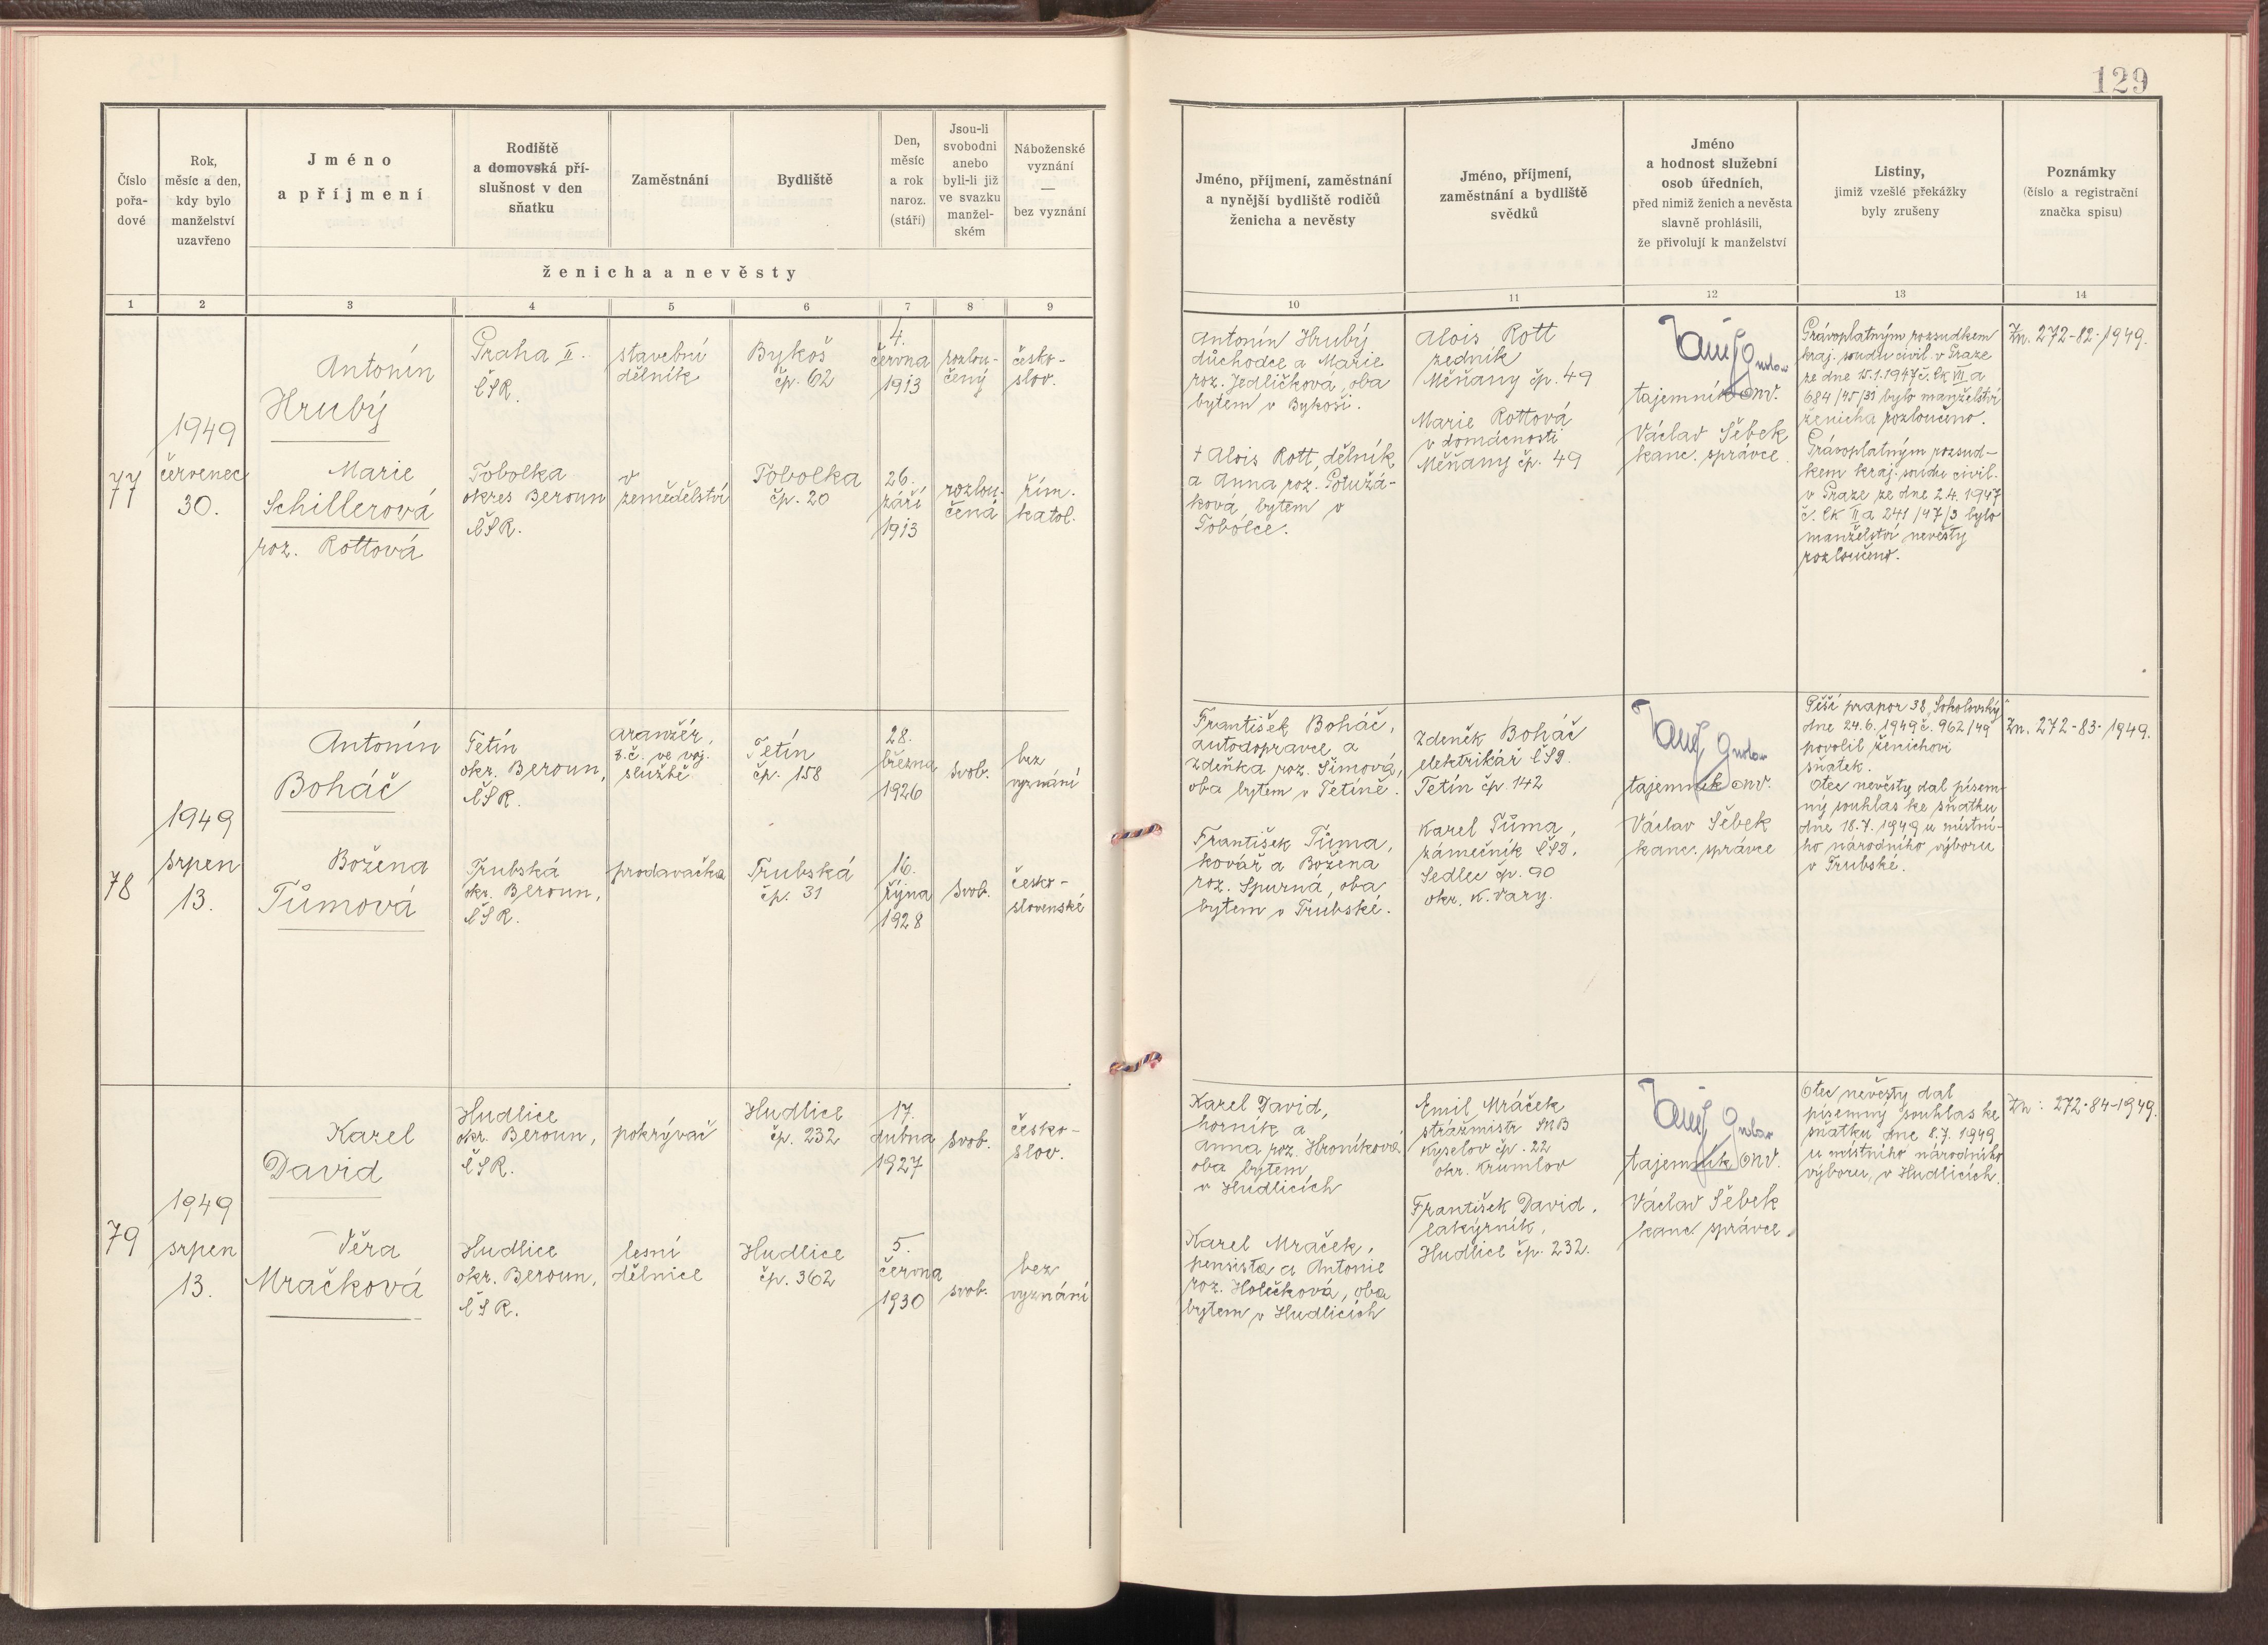 129
Číslo
pořa-
dové
Rok,
měsíc a den,
kdy bylo
manželství
uzavřeno
Jméno
a příjmení
Rodiště
a domovská pří-
slušnost v den
sňatku
Zaměstnání
Bydliště
Den,
měsíc
a rok
naroz.
(stáří)
Jsou-li
svobodni
anebo
byli-li již
ve svazku
manžel-
ském
Náboženské
vyznání
—
bez vyznání
ženicha a nevěsty
Jméno, příjmení, zaměstnání
a nynější bydliště rodičů
ženicha a nevěsty
Jméno, příjmení,
zaměstnání a bydliště
svědků
Jméno
a hodnost služební
osob úředních,
před nimiž ženich a nevěsta
slavně prohlásili,
že přivolují k manželství
Listiny,
jimiž vzešlé překážky
byly zrušeny
Poznámky
(číslo a registrační
značka spisu)
1 2 3 4 5 6 7 8 9 10 11 12 13 14
77
1949
červenec
30.
Antonín
Hrubý
Praha II.
ČSR.
stavební
dělník
Bykoš
čp. 62
4.
června
1913
rozlou-
čený
česko-
slov.
Marie
Schillerová
roz. Rottová
Tobolka
okres Beroun
ČSR.
v
zemědělství
Tobolka
čp. 20
26.
září
1913
rozlou-
čená
řím.
katol.
Antonín Hrubý
důchodce a Marie
roz. Jedličková, oba
bytem v Bykoši.
† Alois Rott, dělník
a Anna roz. Potužá-
ková, bytem v
Tobolce.
Alois Rott
zedník
Měňany čp. 49
Marie Rottová
v domácnosti
Měňany čp. 49
tajemník ONV.
Václav Šebek
kanc. správce
Právoplatným rozsudkem
kraj. soudu civil. v Praze
ze dne 15.1.1947 č. Ck VII a
684/45/31 bylo manželství
ženicha rozloučeno.
Právoplatným rozsud-
kem kraj. soudu civil.
v Praze ze dne 2.4.1947
č. Ck II a 241/47/3 bylo
manželství nevěsty
rozloučeno.
Zn. 272-82-1949.
78
1949
srpen
13.
Antonín
Boháč
Tetín
okr. Beroun,
ČSR.
aranžér,
t.č. ve voj.
službě
Tetín
čp. 158
28.
března
1926
svob.
bez
vyznání
Božena
Tůmová
Trubská
okr. Beroun,
ČSR.
prodavačka
Trubská
čp. 31
16.
října
1928
svob.
česko-
slovenské
František Boháč,
autodopravce a
Zdeňka roz. Šimová,
oba bytem v Tetíně.
František Tůma,
kovář a Božena
roz. Spurná, oba
bytem v Trubské.
Zdeněk Boháč
elektrikář ČSD.
Tetín čp. 142
Karel Tůma,
zámečník ČSD.
Sedlec čp. 90
okr. K. Vary.
tajemník ONV.
Václav Šebek
kanc. správce
Pěší prapor 38 „Sokolovský"
dne 24.6.1949 č. 962/49
povolil ženichovi
sňatek.
Otec nevěsty dal písem-
ný souhlas ke sňatku
dne 18.7.1949 u místní-
ho národního výboru
v Trubské.
Zn. 272-83-1949.
79
1949
srpen
13.
Karel
David
Hudlice
okr. Beroun,
ČSR.
pokrývač
Hudlice
čp. 232
17.
dubna
1927
svob.
česko-
slov.
Věra
Mračková
Hudlice
okr. Beroun,
ČSR.
lesní
dělnice
Hudlice
čp. 362
5.
června
1930
svob.
bez
vyznání
Karel David,
horník a
Anna roz. Hroníková
oba bytem
v Hudlicích
Karel Mraček,
pensista a Antonie
roz. Holečková, oba
bytem v Hudlicích
Emil Mráček
strážmistr SNB
Kyselov čp. 22
okr. Krumlov
František David,
lakýrník,
Hudlice čp. 232.
tajemník ONV.
Václav Šebek
kanc. správce.
Otec nevěsty dal
písemný souhlas ke
sňatku dne 8.7.1949
u místního národního
výboru v Hudlicích.
Zn: 272-84-1949.